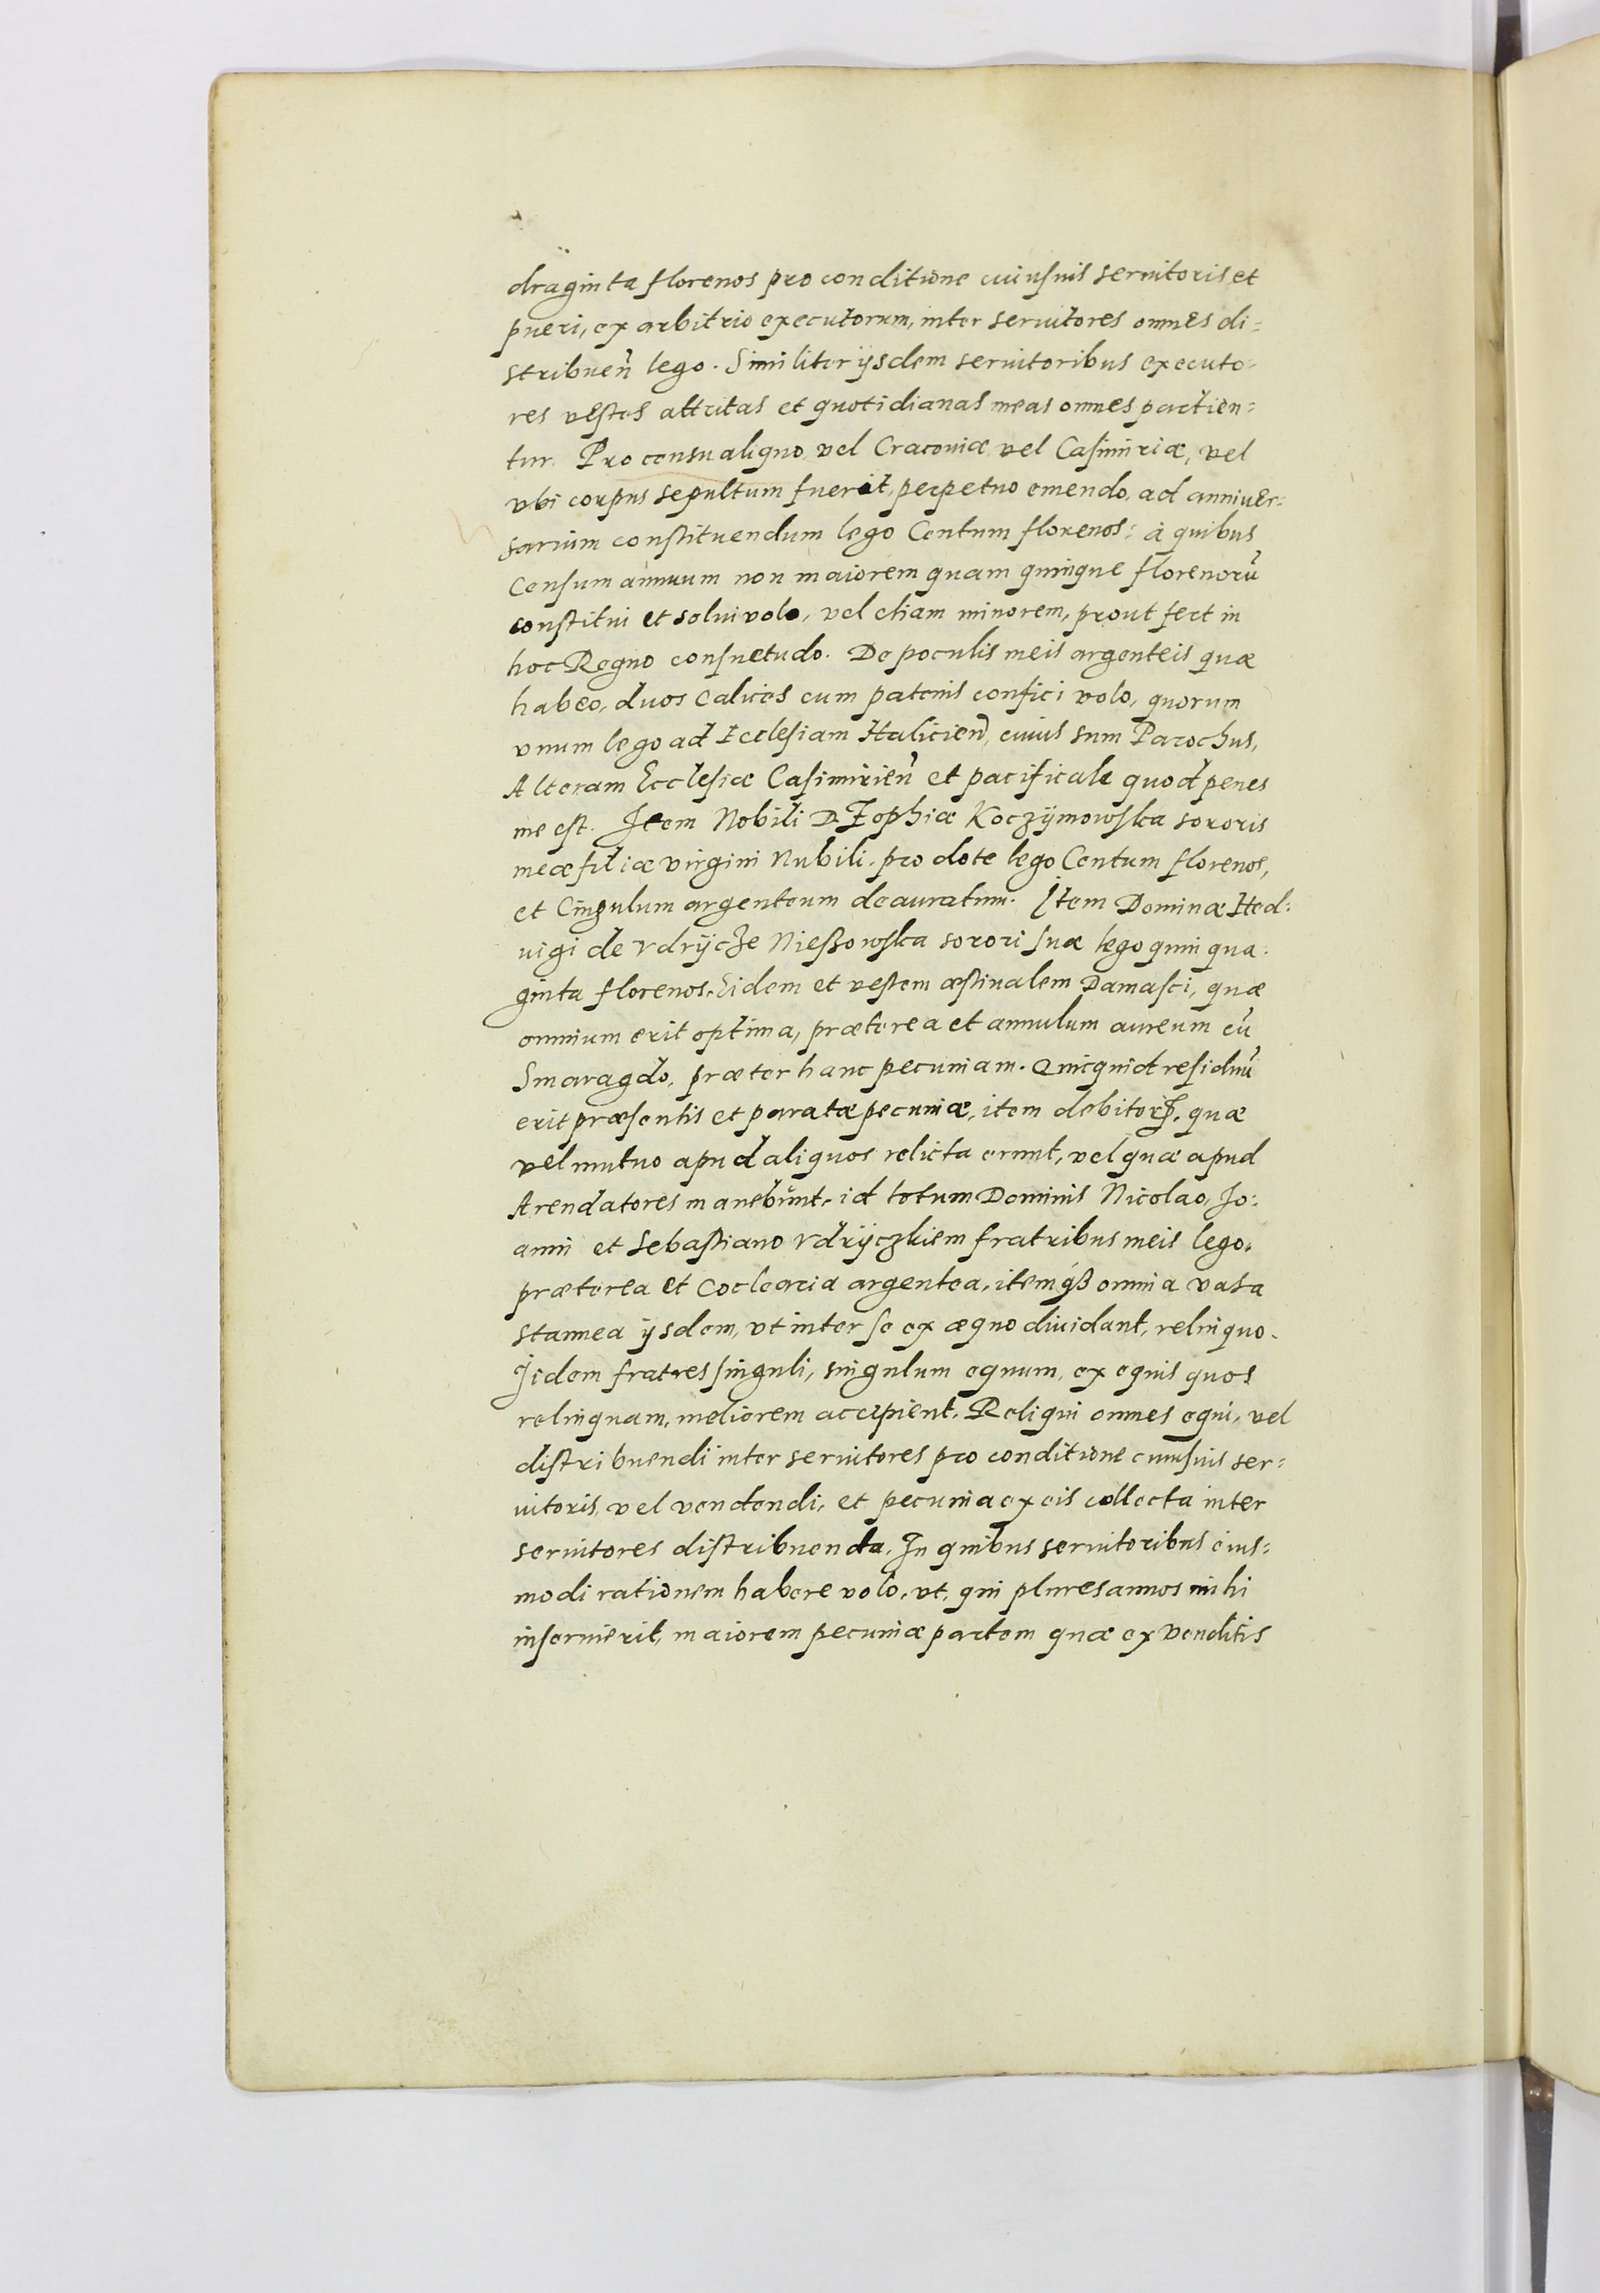 draginta florenos pro conditione cuiusuis seruitoris et
pueri, ex arbitrio executorum, inter seruitores omnes di=
stribueñ lego. Similiter ijsdem seruitoribus executo-
res vestes attritas et quotidianas meas omnes partien=
tur. Pro censu aliquo vel Cracouiæ vel Casimiriæ, vel
vbi corpus sepultum fuerit, perpetuo emendo, ad anniuer=
sarium constituendum lego Centum florenos: à quibus
Censum annuum non maiorem quam quinque florenorū
constitui et solui volo, vel etiam minorem, prout fert in
hoc Regno consuetudo. De poculis meis argenteis quæ
habeo, duos calices cum patenis confici volo, quorum
vnum lego ad Ecclesiam Halicieñ, cuius sum Parochus,
Alteram Ecclesiæ Casimirieñ et pacificale quod penes
me est. Item Nobili D. Zophiæ Koczÿmowska sororis
meæ filiæ virgini Nubili, pro dote lego Centum florenos,
et Cingulum argenteum deauratum. Item Dominæ Hed:
uigi de Vdrÿcze Nießowska sorori suæ lego quinqua:
ginta florenos. Eidem et vestem æstiualem Damasci, quæ
omnium erit optima, præterea et annulum aureum cū
Smaragdo, præter hanc pecuniam. Quicquid residuū
erit præsentis et paratæ pecuniæ, item debitorꝝ, quæ
vel mutuo apud aliquos relicta erunt, vel quæ apud
Arendatores manebunt, id totum Dominis Nicolao, Io:
anni et Sebastiano Vdrÿczkiem fratribus meis lego.
præterea et Coclearia argentea, itemqȝ omnia vasa
stannea ijsdem, vt inter se ex æquo diuidant, relinquo.
Iidem fratres singuli, singulum equum, ex equis quos
relinquam, meliorem accipient. Reliqui omnes equi, vel
distribuendi inter seruitores pro conditione cuiusuis ser=
uitoris, vel vendendi, et pecunia ex eis collecta inter
seruitores distribuenda. In quibus seruitoribus eius=
modi rationem habere volo, vt, qui plures annos mihi
inseruierit, maiorem pecuniæ partem quæ ex venditis